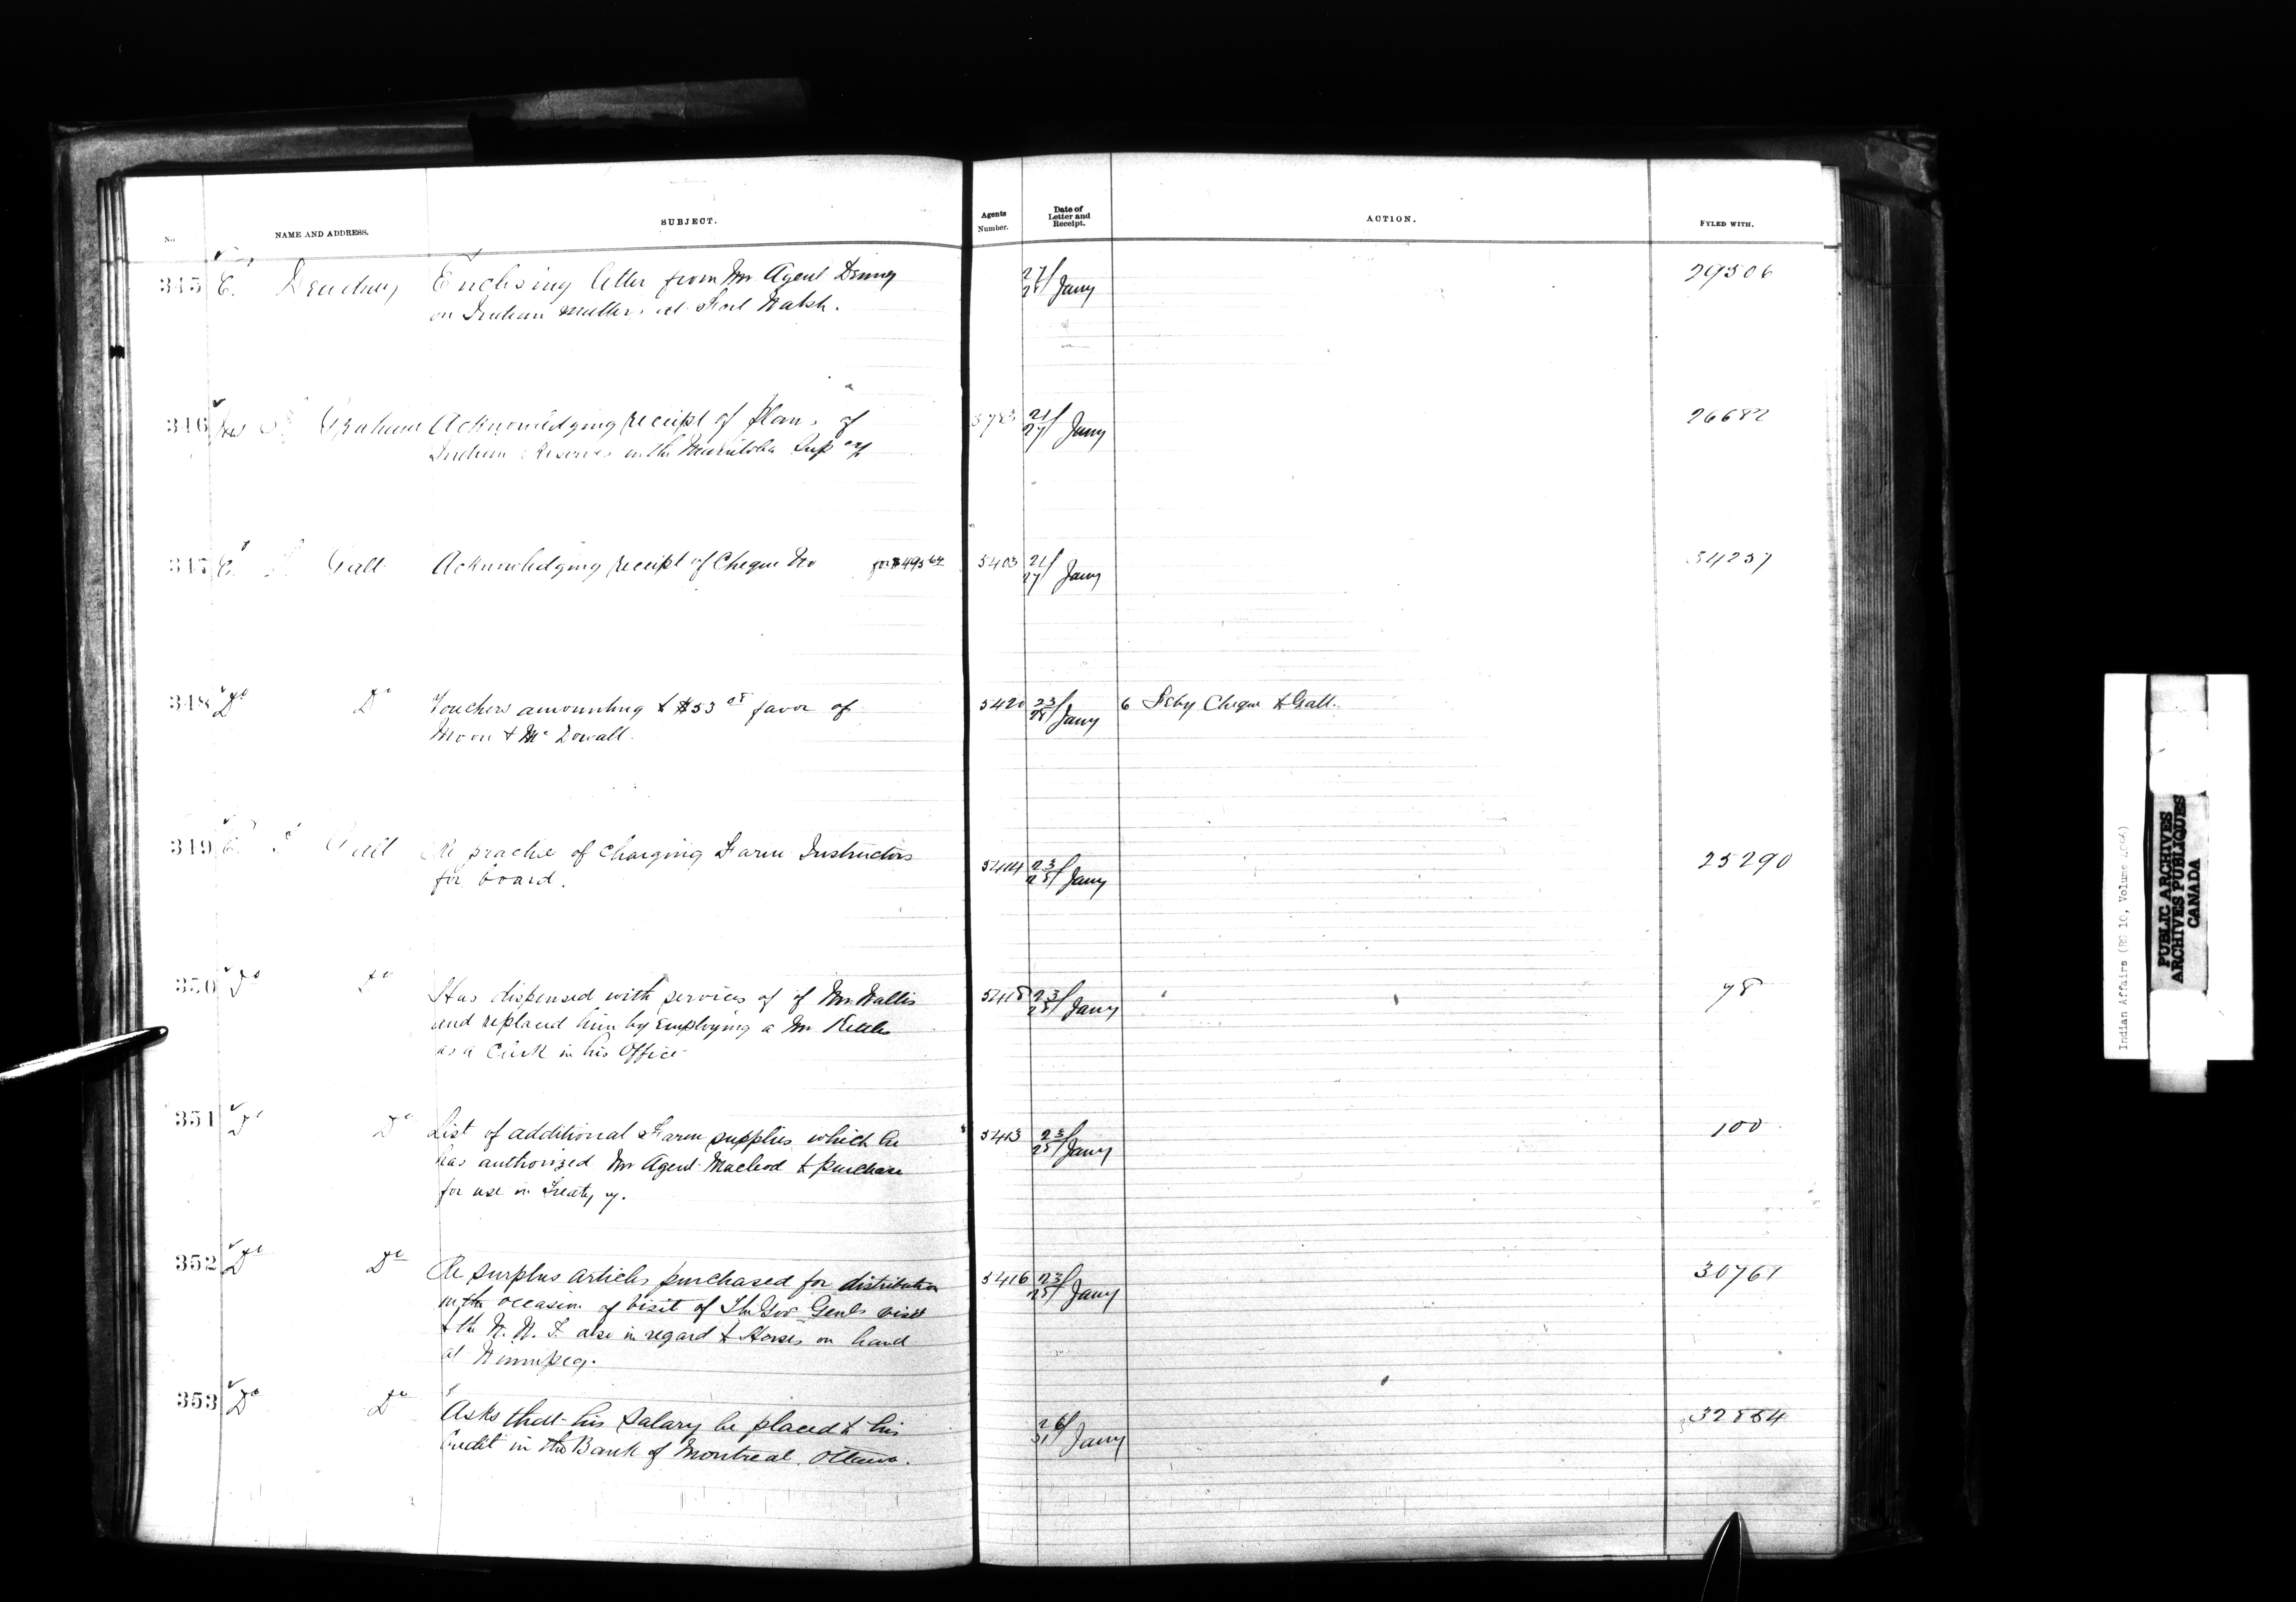 No. NAME AND ADDRESS. SUBJECT. Agents Number. Date of Letter and Receipt. ACTION. FYLED WITH.
345 E. Enclosing letter from Mr Agent Denny 27/ Jany 29506
on Indian matters at Fort Walsh.
346 Graham Acknowledging receipt of plans of 21/27 Jany 26682
Indian Reserves in the Manitoba Sup cy
347 E. Galt Acknowledging receipt of Cheque No for $495 5403 21/27 Jany 34237
348 Do Do Vouchers amounting to $53 favor of 5420 23/28 Jany 6 Feby Cheque to Galt.
Moore & McDowall.
349 E. Galt Re practice of charging Farm Instructors 5414 23/28 Jany 25290
for board.
350 Do Do Has dispensed with services of of Mr Wallis 5418 23/28 Jany 78
and replaced him by employing a Mr
as a Clerk in his Office
351 Do Do List of additional Farm supplies which he 5413 23/28 Jany 100
has authorized Mr Agent Macleod to purchase
for use in Treaty 7.
352 Do Do Re surplus articles purchased for distribution 5416 23/28 Jany 30761
on the occasion of visit of The Gov Genls visit
to the N. W. T. also in regard to Horses on hand
at Winnipeg.
353 Do Do Asks that his Salary be placed to his 26/31 Jany 32854
Credit in the Bank of Montreal, Ottawa.
Indian Affairs (RG 10, Volume
PUBLIC ARCHIVES
ARCHIVES PUBLIQUES
CANADA